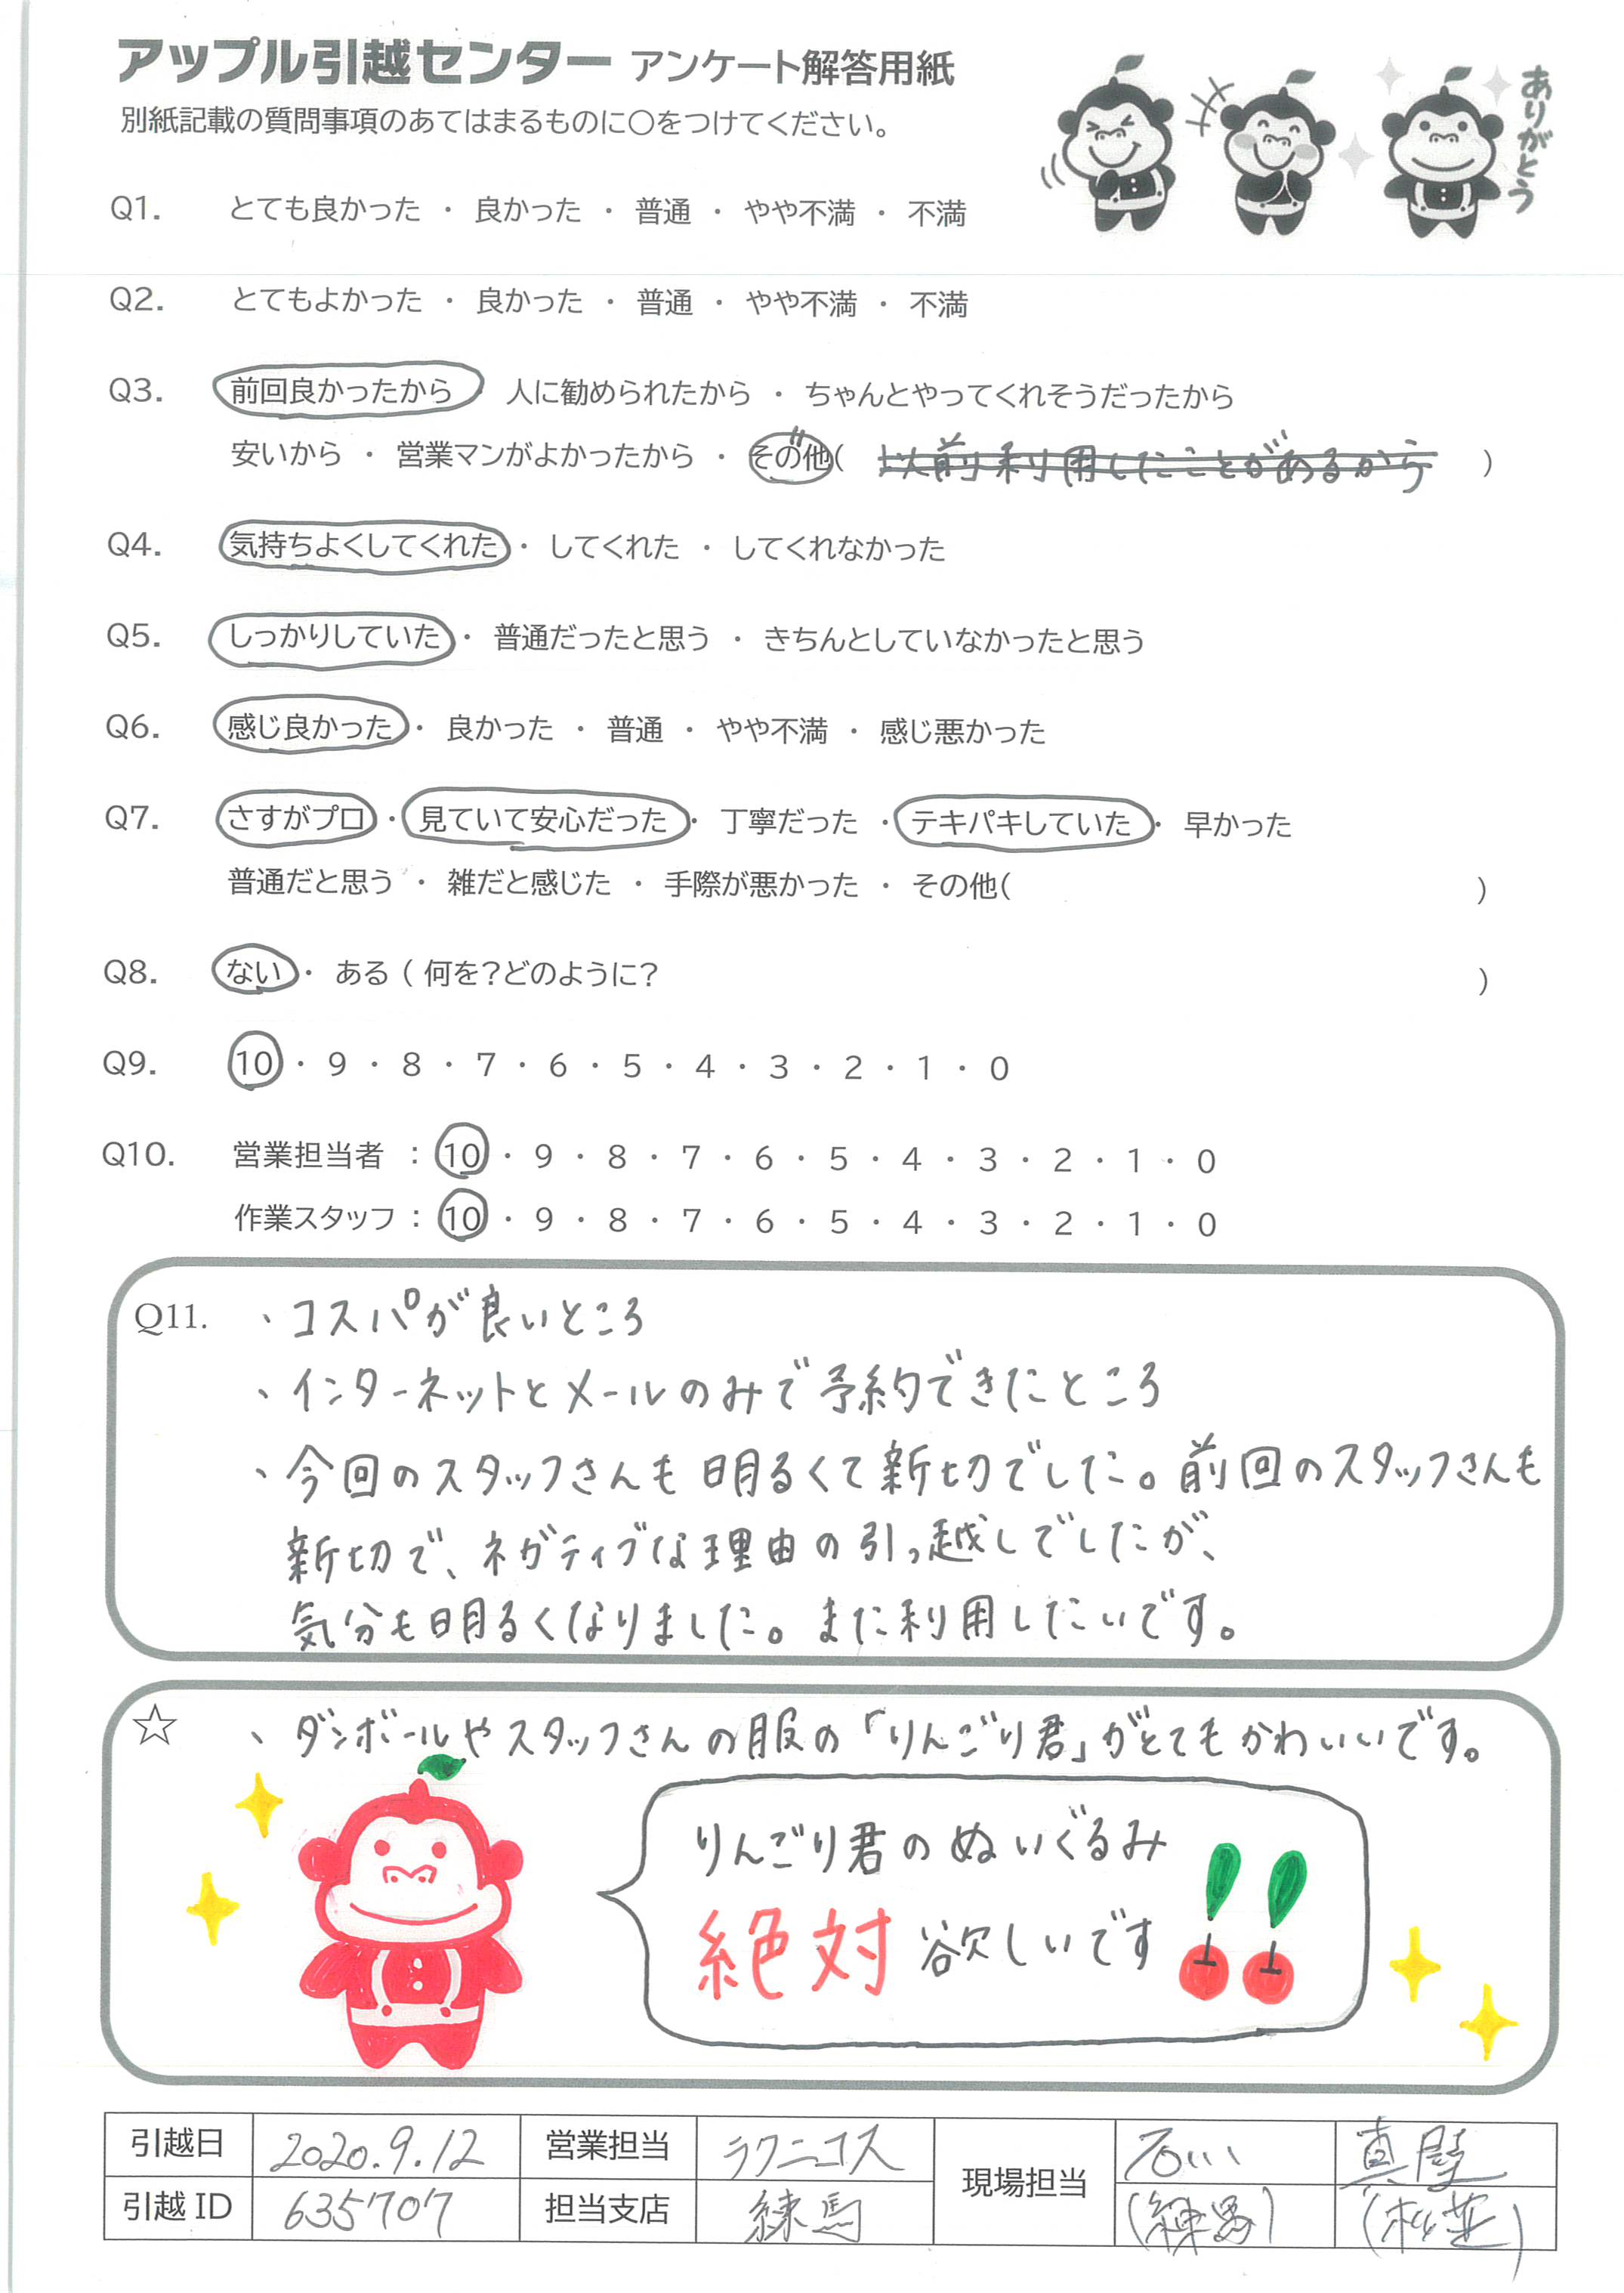 アップル引越センター アンケート解答用紙
別紙記載の質問事項のあてはまるものに○をつけてください。
ありがとう
Q1. とても良かった ・ 良かった ・ 普通 ・ やや不満 ・ 不満
Q2. とてもよかった ・ 良かった ・ 普通 ・ やや不満 ・ 不満
Q3. 前回良かったから ・ 人に勧められたから ・ ちゃんとやってくれそうだったから
安いから ・ 営業マンがよかったから ・ その他( 以前利用したことがあるから )
Q4. 気持ちよくしてくれた ・ してくれた ・ してくれなかった
Q5. しっかりしていた ・ 普通だったと思う ・ きちんとしていなかったと思う
Q6. 感じ良かった ・ 良かった ・ 普通 ・ やや不満 ・ 感じ悪かった
Q7. さすがプロ ・ 見ていて安心だった ・ 丁寧だった ・ テキパキしていた ・ 早かった
普通だと思う ・ 雑だと感じた ・ 手際が悪かった ・ その他( )
Q8. ない ・ ある ( 何を?どのように? )
Q9. 10 ・ 9 ・ 8 ・ 7 ・ 6 ・ 5 ・ 4 ・ 3 ・ 2 ・ 1 ・ 0
Q10. 営業担当者 : 10 ・ 9 ・ 8 ・ 7 ・ 6 ・ 5 ・ 4 ・ 3 ・ 2 ・ 1 ・ 0
作業スタッフ : 10 ・ 9 ・ 8 ・ 7 ・ 6 ・ 5 ・ 4 ・ 3 ・ 2 ・ 1 ・ 0
Q11. 、コスパが良いところ
、インターネットとメールのみで予約できたところ
、今回のスタッフさんも明るくて新切でした。前回のスタッフさんも
新切で、ネガティブな理由の引っ越しでしたが、
気分も明るくなりました。また利用したいです。
☆ 、ダンボールやスタッフさんの服の「りんごり君」がとてもかわいいです。
りんごり君のぬいぐるみ
絶対欲しいです
引越日 2020.9.12 営業担当 ラクニコス 現場担当 石川 真壁
引越ID 635707 担当支店 練馬 (練馬)